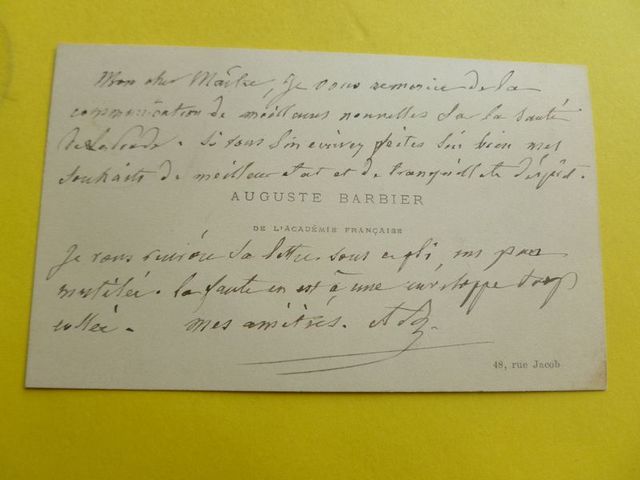 Mon cher Maître, je vous remercie de la
communication de meilleures nouvelles sur la santé
de . Si vous lui écrivez faites lui bien mes
souhaits de meilleur état et de tranquillité d'esprit.
AUGUSTE BARBIER
DE L'ACADÉMIE FRANÇAISE
Je vous renvoie sa lettre sous ce pli, un peu
mutilée. la faute en est à une enveloppe trop
collée. mes amitiés. A B.
48, rue Jacob